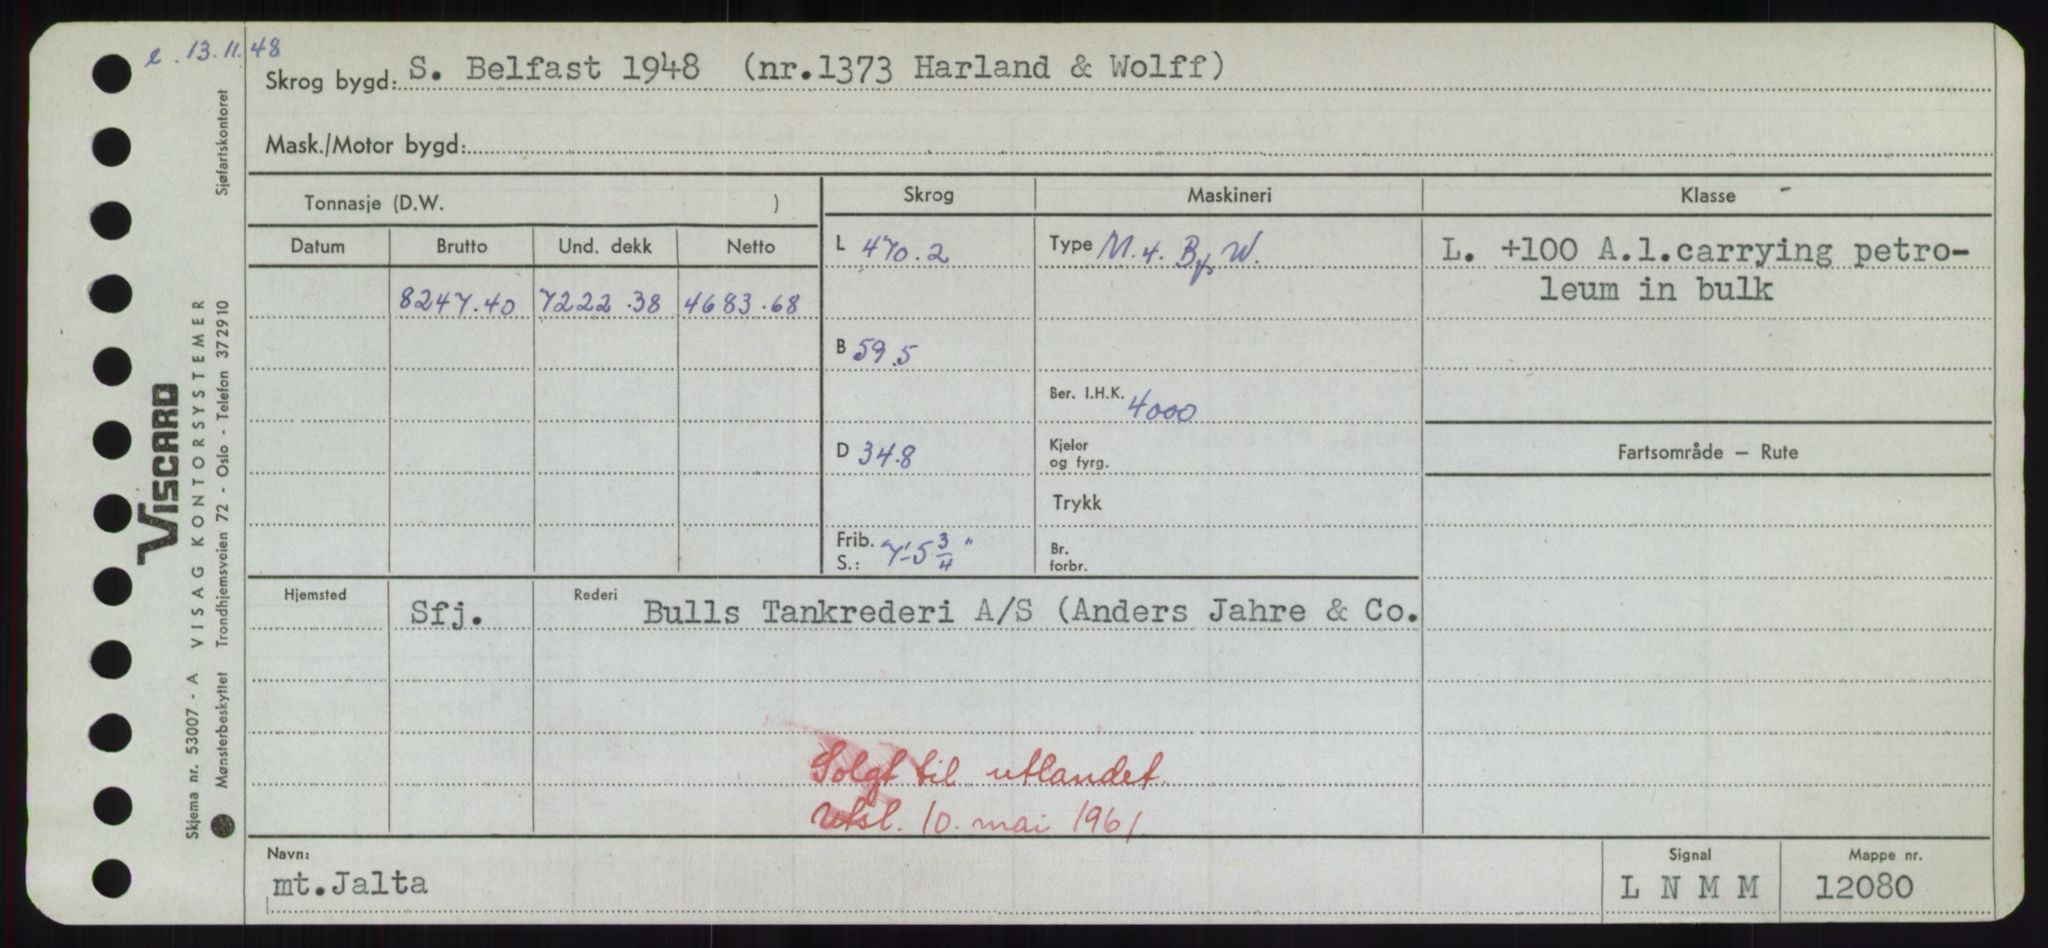 e. 13.11.48
Skrog bygd: S. Belfast 1948 (nr.1373 Harland & Wolff)
Mask./Motor bygd:
Tonnasje (D.W. )
Skrog
Maskineri
Klasse
Datum Brutto Und. dekk Netto
8247.40 7222.38 4683.68
L 470.2
B 59.5
D 34.8
Frib. S.: 7'-5 3/4"
Type M. 4. B & W.
Ber. I.H.K. 4000
Kjeler
og fyrg.
Trykk
Br.
forbr.
L. +100 A.1.carrying petro-
leum in bulk
Fartsområde – Rute
Hjemsted Sfj. Rederi Bulls Tankrederi A/S (Anders Jahre & Co.
Solgt til utlandet
Utsl. 10. mai 1961
Navn:
mt.Jalta
Signal
L N M M
Mappe nr.
12080
Skjema nr. 53007 - A VISAG KONTORSYSTEMER
Mønsterbeskyttet Trondhjemsveien 72 - Oslo - Telefon 372910 Sjøfartskontoret
VISCARD